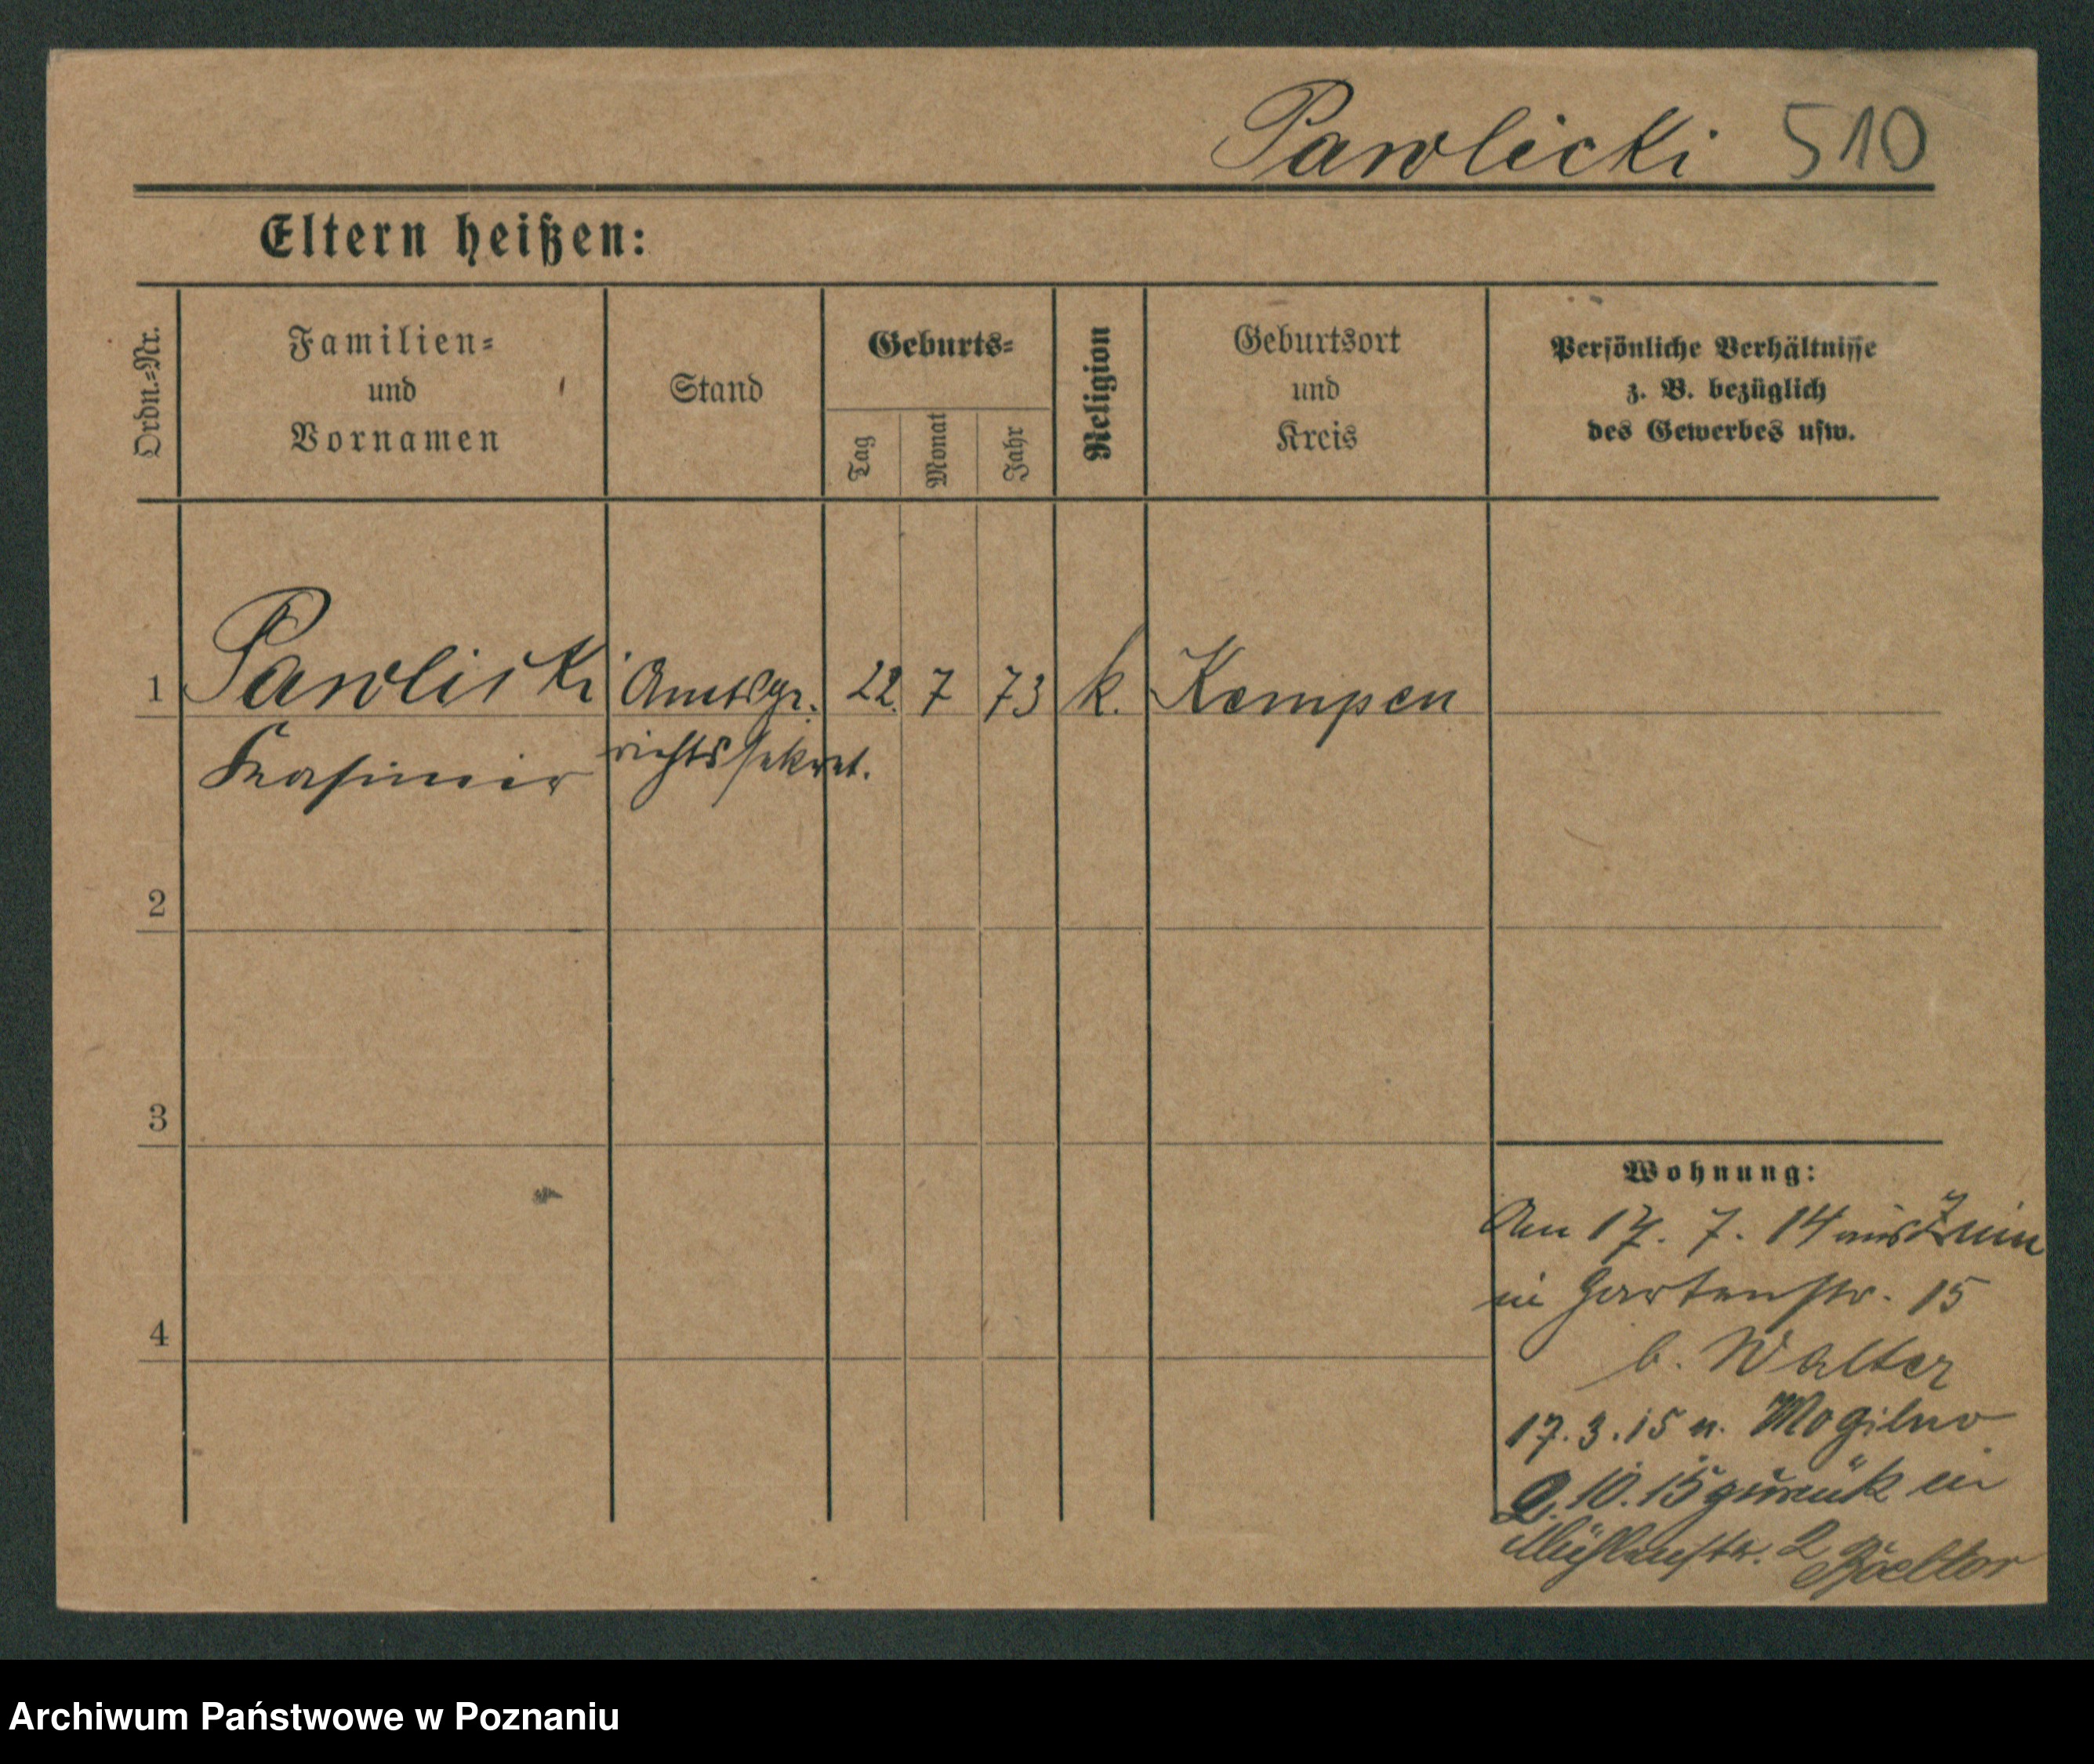 Pawlicki 510
Eltern heißen:
Ordn.-Nr.
Familien-
und
Vornamen
Stand
Geburts-
Tag
Monat
Jahr
Religion
Geburtsort
und
Kreis
Persönliche Verhältnisse
z. B. bezüglich
des Gewerbes usw.
1 Pawlicki Amtsge- 22. 7 73 k. Kempen
Kasimir richtssekret.
2
3
4
Wohnung:
Am 17. 7. 14 aus Znin
in Gartenstr. 15
b. Walter
17. 3. 15 n. Mogilno
2. 10. 15 zurück in
Mühlenstr. 2
Archiwum Państwowe w Poznaniu